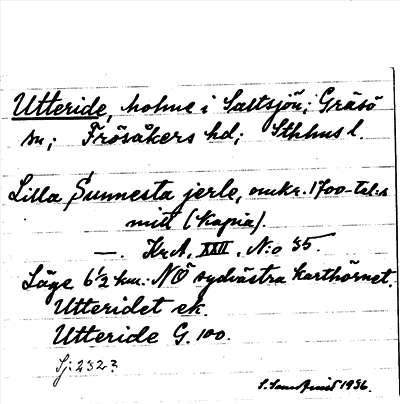 Utteride, holme i Saltsjön; Gräsö
sn; Frösåkers hd; Sthlms l.
Lilla Sunnesta jerle, omkr. 1700-talets
mitt (kopia).
—. Kr.A. XXII, N:o 35.
Läge 6 1/2 km. NÖ sydvästra karthörnet.
Utteridet ek.
Utteride G. 100.
Sj: 2323
1936.